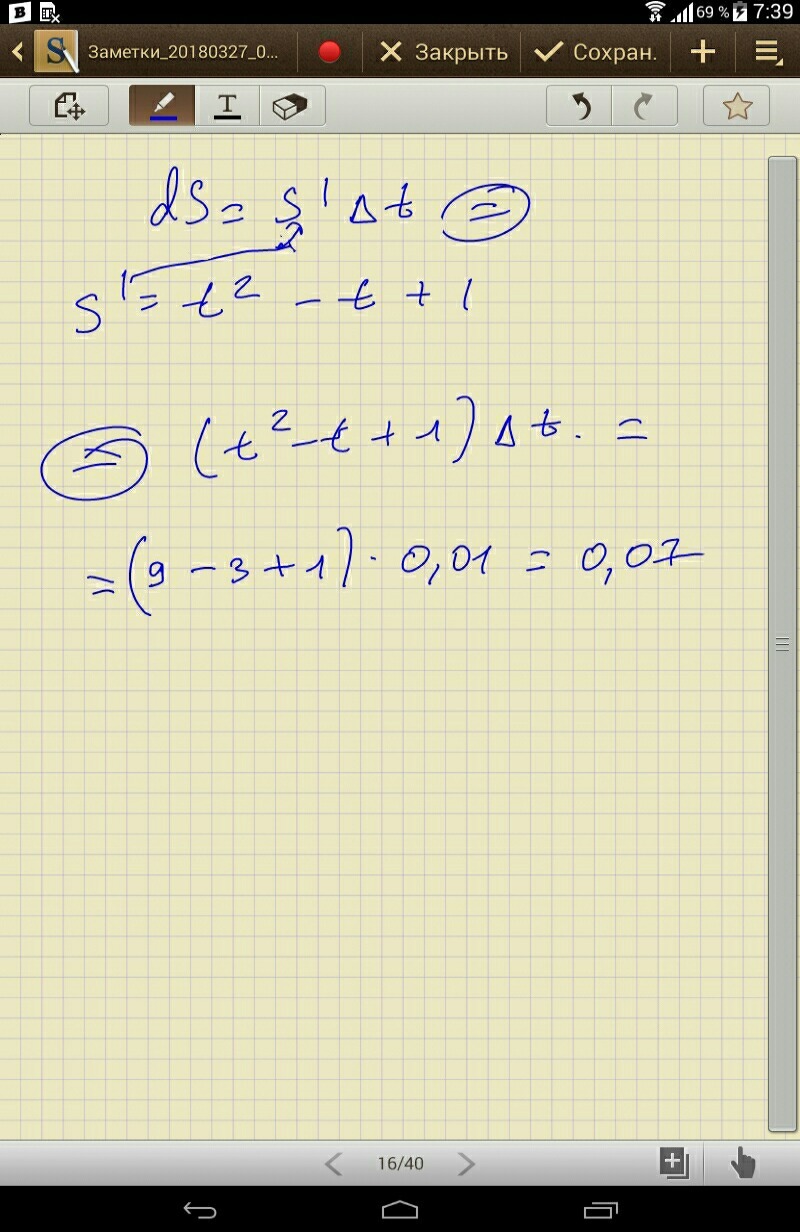 69 % 7:39
Заметки_20180327_0... Закрыть Сохран.
T
dS = S' Δt =
S' = t² - t + 1
= (t² - t + 1) Δt. =
= (9 - 3 + 1) · 0,01 = 0,07
16/40